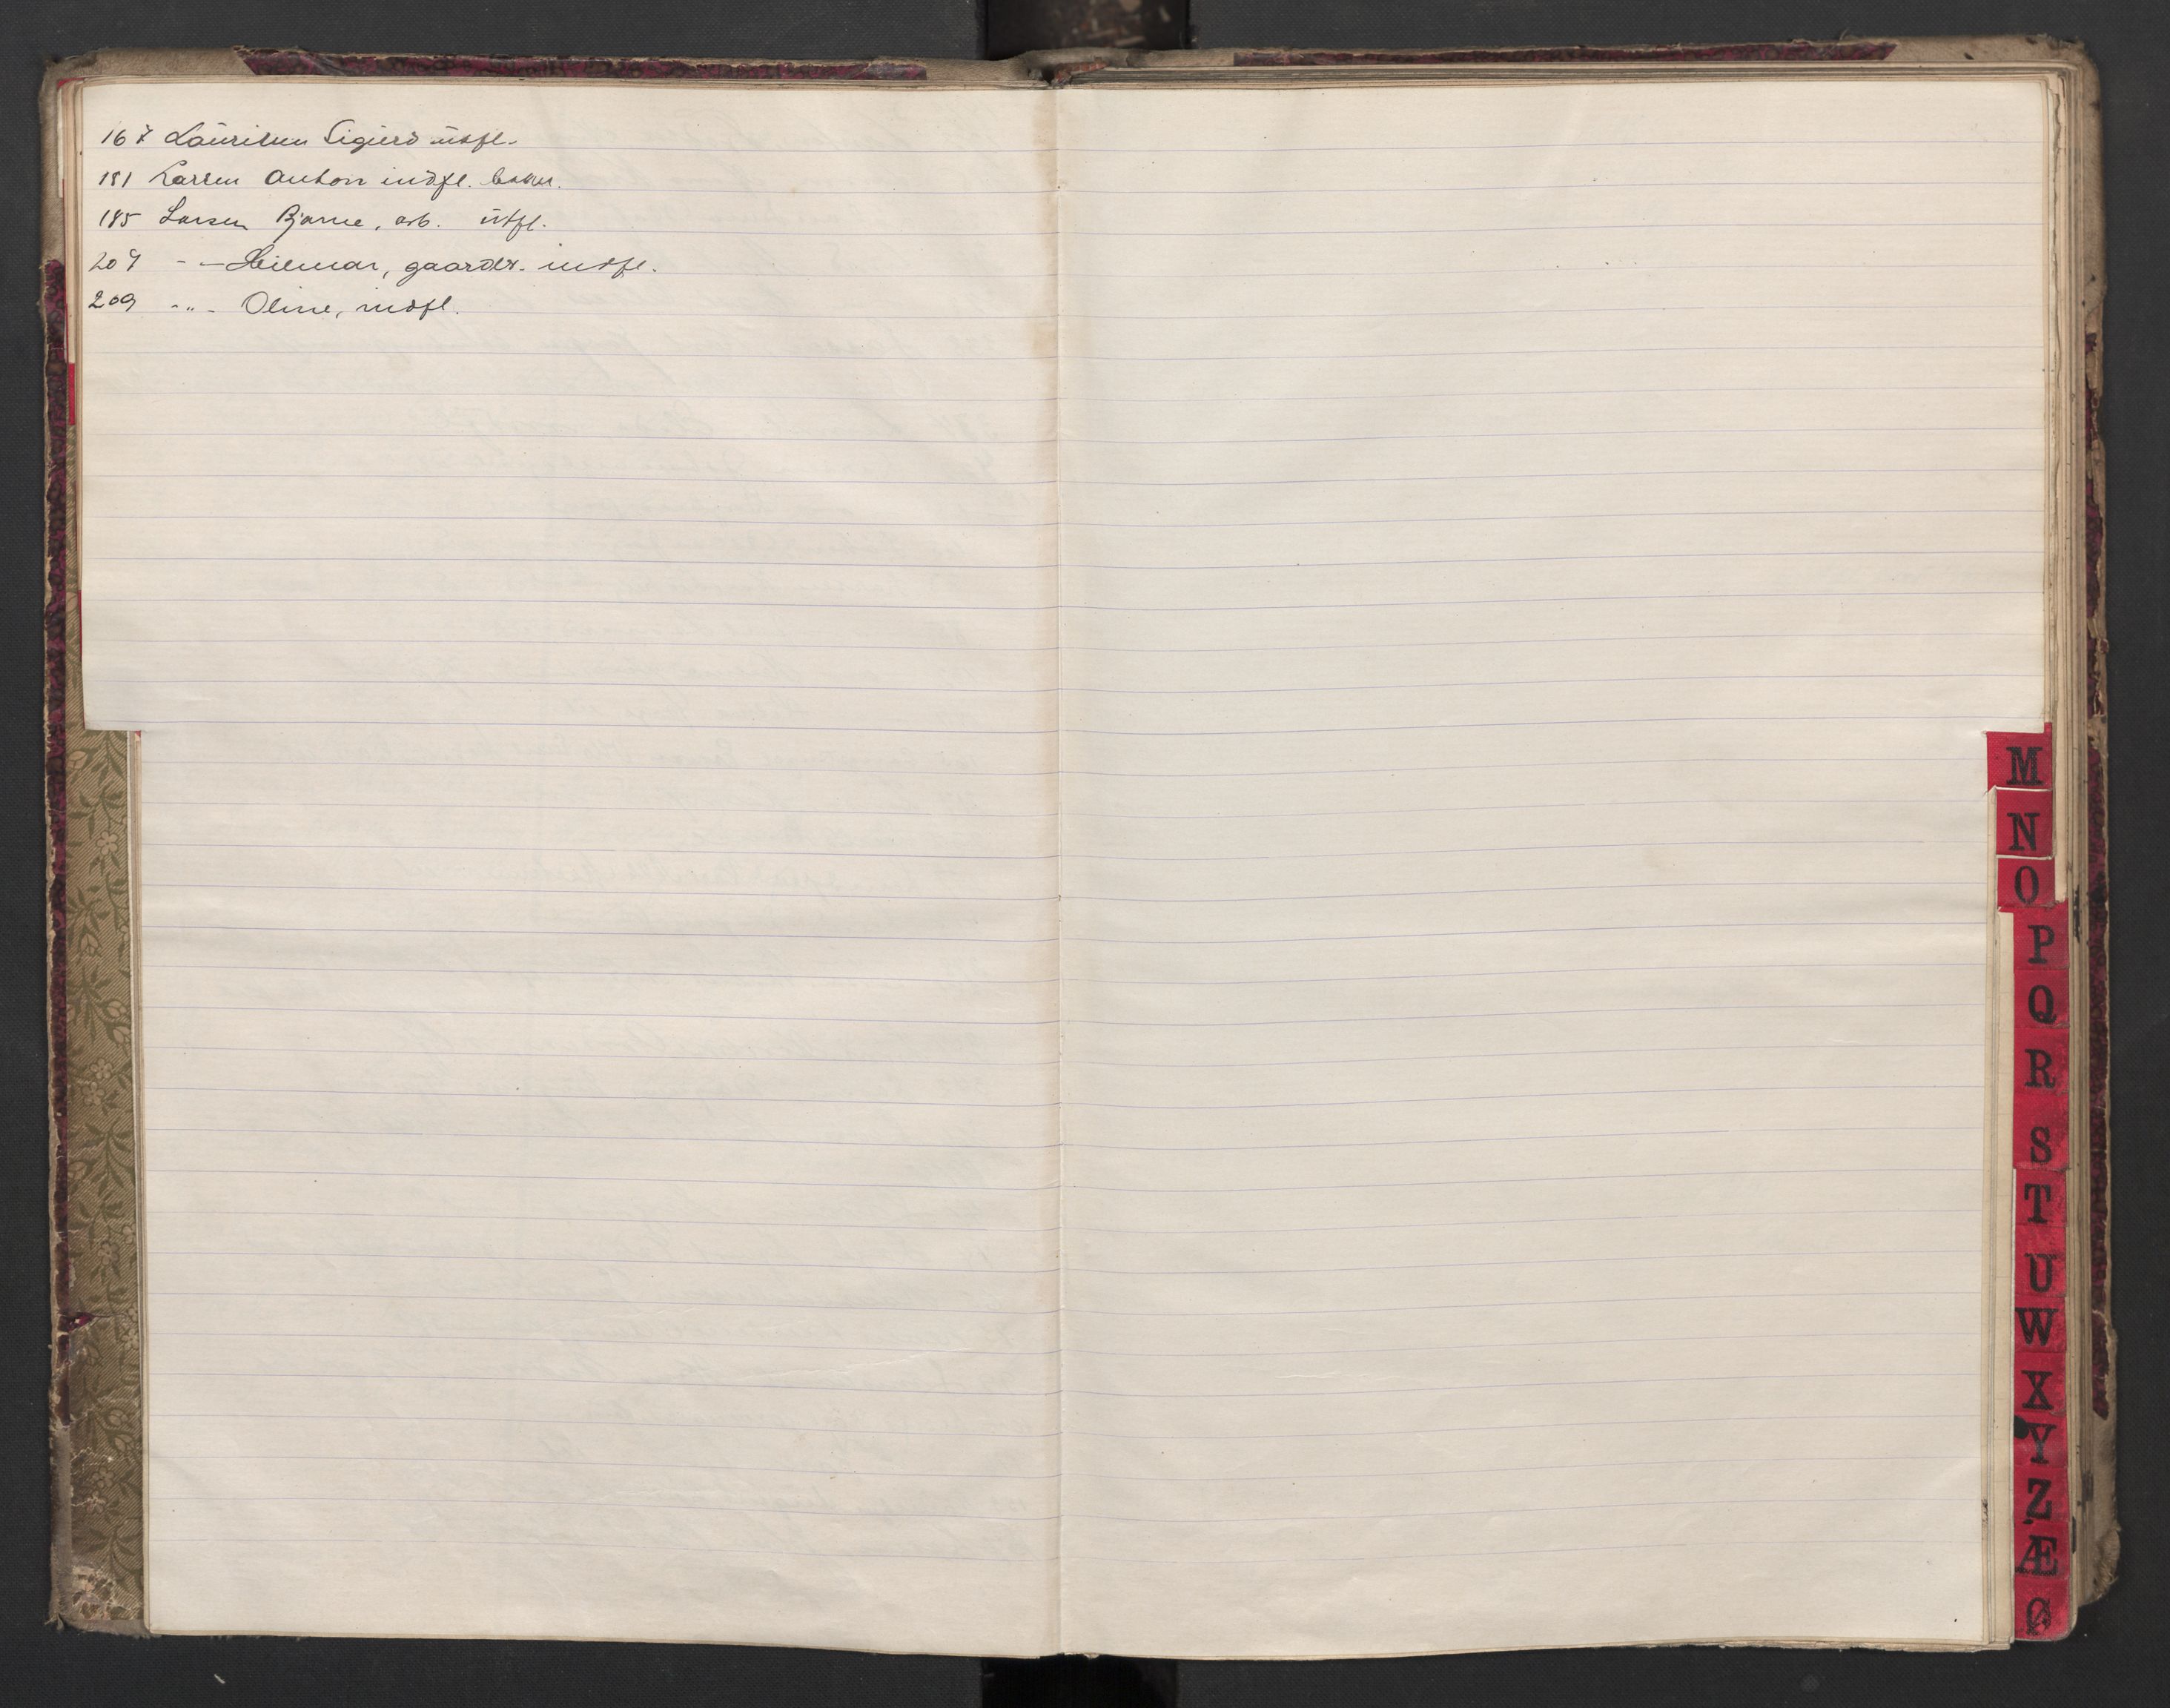 167 Lauritsen Sigurd utfl.
181 Larsen Anton indfl. baker.
185 Larsen Bjarne, arb. utfl.
207 - " - Hilmar, gaardbr. indfl.
209 - " - Oline, indfl.
M
N
O
P
Q
R
S
T
U
W
X
Y
Z
Æ
Ø